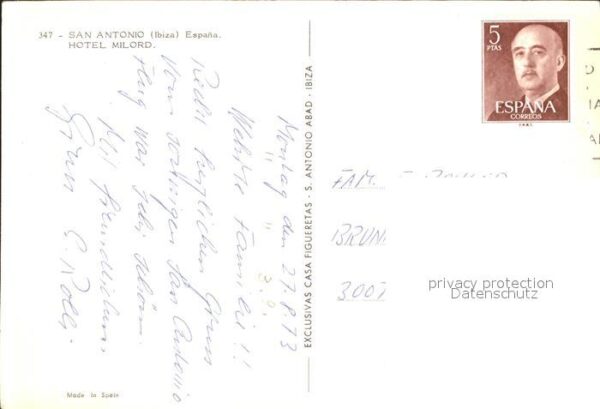 347 - SAN ANTONIO (Ibiza) España.
HOTEL MILORD.
Montag den 27.8.73
Werte Familie!!
Recht herzlichen Gruss
vom sonnigen San Antonio
Flug war sehr schön.
Mit freundlichem
Gruss E.
Made in Spain
EXCLUSIVAS CASA FIGUERETAS - S. ANTONIO ABAD - IBIZA
5
PTAS
ESPAÑA
CORREOS
FAM.
BRUN
3007
privacy protection
Datenschutz